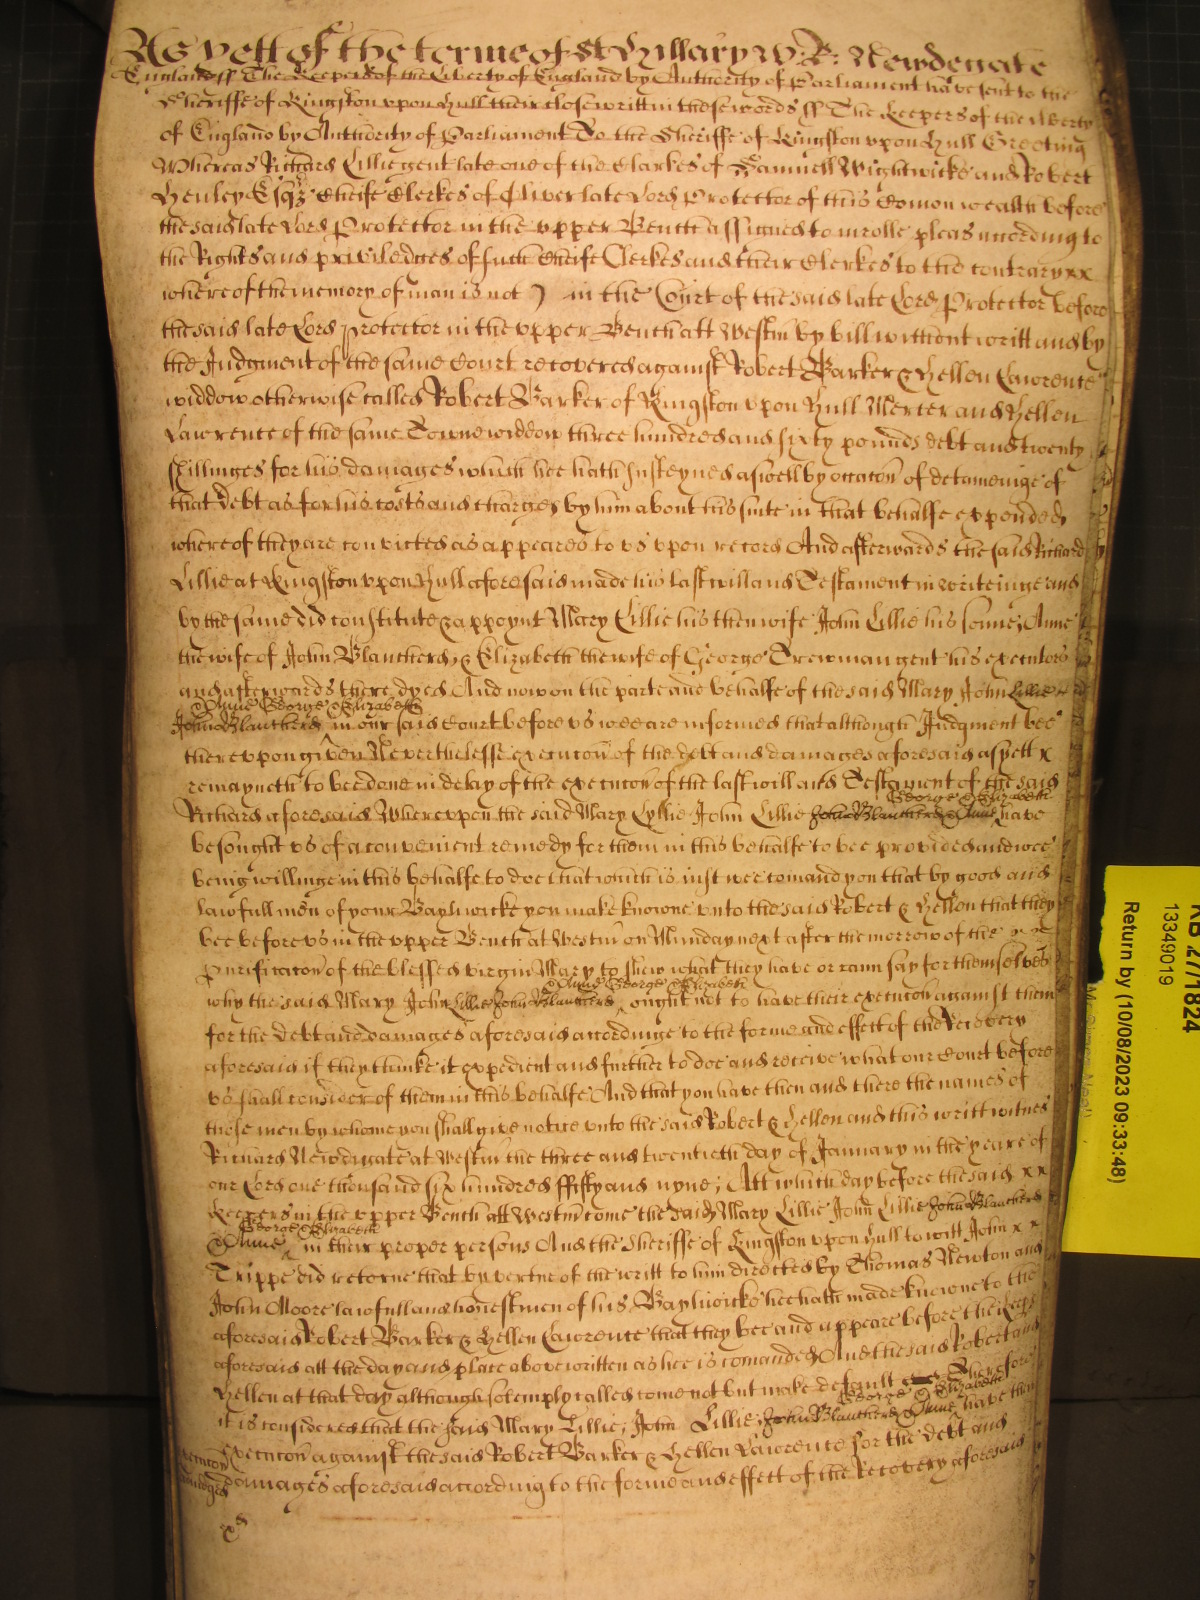 As yett of the terme of St Hyllary W. R: Newdegate
England ss The Keepers of the Liberty of England by Authority of Parliament have sent to the
Sheriffe of Kingston upon Hull their close writt in these words ss The Keepers of the liberty
of England by Authority of Parliament To the Sheriffe of Kingston upon Hull Greeting
Whereas Richard Lillie gent late one of the Clarkes of Samuell Wightwicke and Robert
Henley Esqs Cheife Clerkes of Oliver late Lord Protector of this Comon wealth before
the said late Lord Protector in the upper Bench assigned to inrolle pleas according to
the Rights and priviledges of such Cheife Clerkes and their Clerkes to the contrary xx
whereof the memory of man is not) in the Court of the said late Lord Protector before
the said late Lord Protector in the upper Bench att Westm by bill without writt and by
the Judgment of the same Court recovered against Robert Barker & Hellen Lawrence
widdow otherwise called Robert Barker of Kingston upon Hull Mercer and Hellen
Lawrence of the same Towne widdow three hundred and sixty pounds debt and twenty
shillinges for his damages which hee hath susteyned aswell by occacon of deteineinge of
that debt as for his costs and charges by him about his suite in that behalfe expended
whereof they are convicted as appeares to us upon record And afterwards the said Richard
Lillie at Kingston upon Hull aforesaid made his last will and Testament in writeinge and
by the same did constitute & appoynt Mary Lillie his then wife John Lillie his sonne, Anne
the wife of John Blancherd, & Elizabeth the wife of George Trewman gent his executors
and afterwards there dyed And now on the parte and behalfe of the said Mary John Lillie
Anne George & Elizabeth
John Blancherd in our said Court before us wee are informed that although Judgment bee
thereupon given Neverthelesse execucon of the debt and damages aforesaid as yett x
remayneth to bee done in delay of the execucon of the last will and Testament of the said
George & Elizabeth
Richard aforesaid Whereupon the said Mary Lyllie John Lillie John Blancherd & Anne have
besought us of a convenient remedy for them in this behalfe to bee provided and wee
being willinge in this behalfe to doe that which is just wee comand you that by good and
lawfull men of your Baylwicke you make knowne unto the said Robert & Hellen that they
bee before us in the upper Bench at Westm on Munday next after the morrow of the
purificacon of the blessed virgin Mary to shew what they have or cann say for themselves
Anne George & Elizabeth
why the said Mary John Lillie John Blancherd ought not to have their execucon against them
for the debt and damages aforesaid accordinge to the forme and effect of the Recovery
aforesaid if they thinke it expedient and further to doe and receive what our Court before
us shall consider of them in this behalfe And that you have then and there the names of
those men by whome you shall give notice unto the said Robert & Hellen and this writt witnes
Richard Newdigate at Westm the three and twentieth day of January in the yeare of
our Lord one thousand six hundred ffifty and nyne; Att which day before the said xx
Keepers in the upper Bench att Westm come the said Mary Lillie John Lillie John Blancherd
George & Elizabeth
& Anne in their proper persons And the Sheriffe of Kingston upon Hull to witt John x x
Trippe did retorne that by vertue of the writt to him directed by Thomas Newton and
John Moore lawfull and honest men of his Baylwicke hee hath made knowne to the
aforesaid Robert Barker & Hellen Lawrence that they bee and appeare before the Keeps
aforesaid att the day and place above written as hee is comanded And the said Robert and
Hellen at that day although solemply called come not but make default Therefore
George & Elizabeth
it is considered that the said Mary Lillie, John Lillie, John Blancherd & Anne have their
Execucon against the said Robert Barker & Hellen Lawrence for the debt and
damages aforesaid according to the forme and effect of the Recovery aforesaid
KB 27/1824
13349019
Return by (10/08/2023 09:33:48)